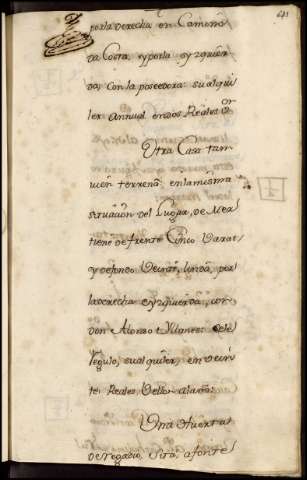 641
por la derecha en Camino
da Costa, y por la yzquier
da, con la poseedora: su alqui
ler Annual en dos Reales Von
Otra Casa tam
vien terrena, en la misma
situacion del Lugar, de Mea
tiene de frente Cinco Varas
y de fondo Veinte, linda, por
la derecha e yzquierda, con
don Alonso
su alquiler, en Vein
te Reales Vellon al año:
Una Huerta
de regadio, Sita, a fonte